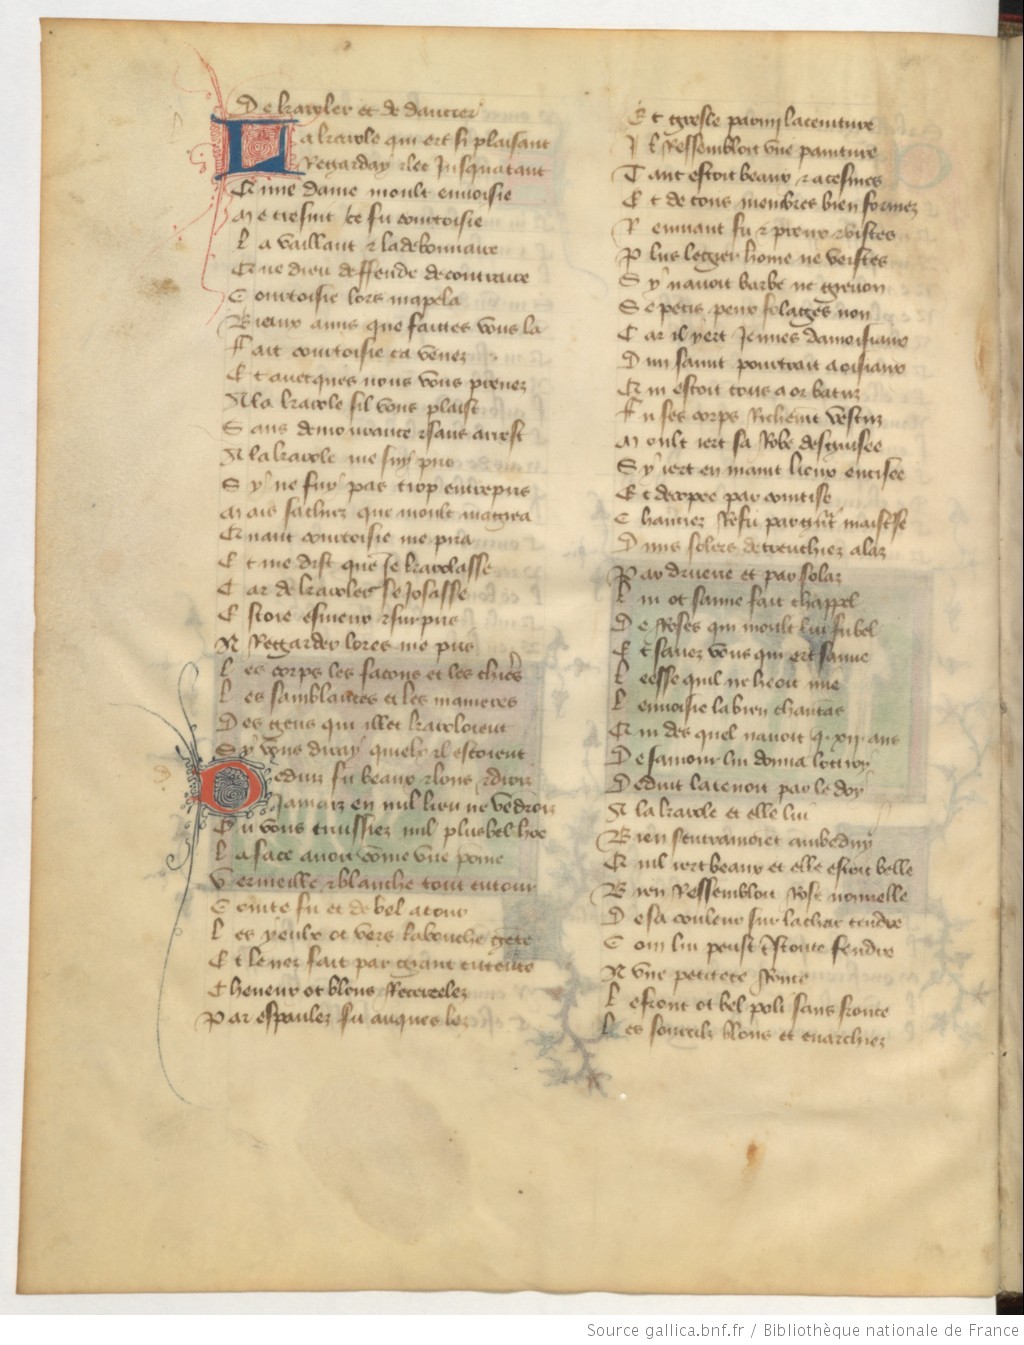 De karoler et de dancier
La karole qui ert si plaisant
Regarday illec Jusqua tant
Qune dame moult envoisie
Me tresvit ce fu courtoisie
La vaillant et la debonnaire
Que dieu deffende de contraire
Courtoisie lors mapela
Bieaux amis que faittes vous la
Fait courtoisie ca venez
Et avecques nous vous prenez
A la karole sil vous plaist
Sans demourance et sans arrest
A la karole me suy pris
Sy ne fuy pas trop entrepris
Mais sachiez que moult magrea
Quant courtoisie me pria
Et me dist que Je karolasse
Car de karoler se Josasse
Estoie esmeux et surpris
A Regarder lores me pris
Les corps les facons et les chieres
Les samblances et les manieres
Des gens qui illec karoloient
Sy vous diray quielx il estoient
Deduiz fu beaux et lons et droiz
Jamaiz en nul lieu ne vedroiz
Ou vous truissiez nul plus bel hoe
La face avoit come une pome
Vermeille et blanche tout entour
Cointe fu et de bel atour
Les yeulx ot vers la bouche gete
Et le nez fait par grant entente
Cheveux ot blons Recercelez
Par espaulez fu auques lez
Et gresle parmy la ceinture
Il Ressembloit une painture
Tant estoit beaux et acesmes
Et de tous membres bien formez
Remuant fu et preux et vistes
Plus legier home ne veistes
Sy navoit barbe ne grenon
Se petis peux folages non
Car il yert Jeunes damoisiaux
Dun samit pourtrait a oisiaux
Qui estoit tous a or batuz
Fu ses corps Richement vestuz
Moult iert sa Robe desguisee
Sy iert en maint lieux encisee
Et decopee par cointise
Chauciez Refu par grant maistrise
Duns solers detrenchiez a laz
Par druerie et par solaz
Lui ot samie fait chappel
De Roses qui moult lui fu bel
Et savez vous qui ert samie
Leesse quil ne heoit mie
Lenvoisie la bien chantas
Qui des quel navoit q. xii. ans
De samour lui donna lottroy
Deduit la tenoit par le doy
A la karole et elle lui
Bien sentramoiet ambeduy
Quil iert beaux et elle estoit belle
Bien Ressembloit Rose nouvelle
De sa couleur sur la char tendre
Com lui peust tstoute fendre
A une petitete Ronce
Le front ot bel poli sans fronce
Les sourcilz blons et enarchiez
Source gallica.bnf.fr / Bibliothèque nationale de France